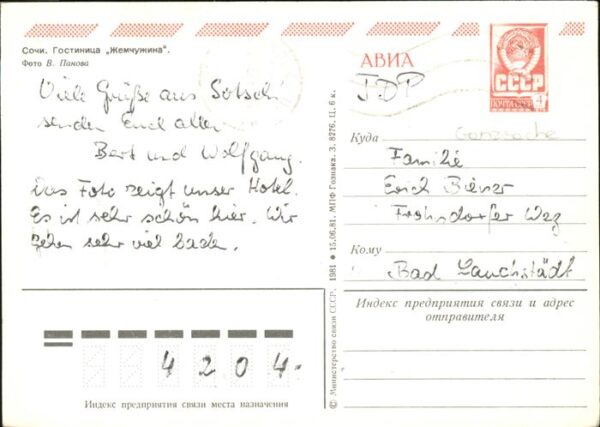 Сочи. Гостиница „Жемчужина".
Фото В. Панова
Viele Grüße aus Sotschi
senden Euch allen
Bert und Wolfgang.
Das Foto zeigt unser Hotel.
Es ist sehr schön hier. Wir
gehen sehr viel baden.
АВИА
СССР
ПОЧТА 4
Куда
Familie
Erich
Frohndorfer Weg
Кому
Bad Lauchstädt
Индекс предприятия связи и адрес
отправителя
4204
Индекс предприятия связи места назначения
© Министерство связи СССР. 1981 • 15.06.81. МПФ Гознака. З. 8276. Ц. 6 к.